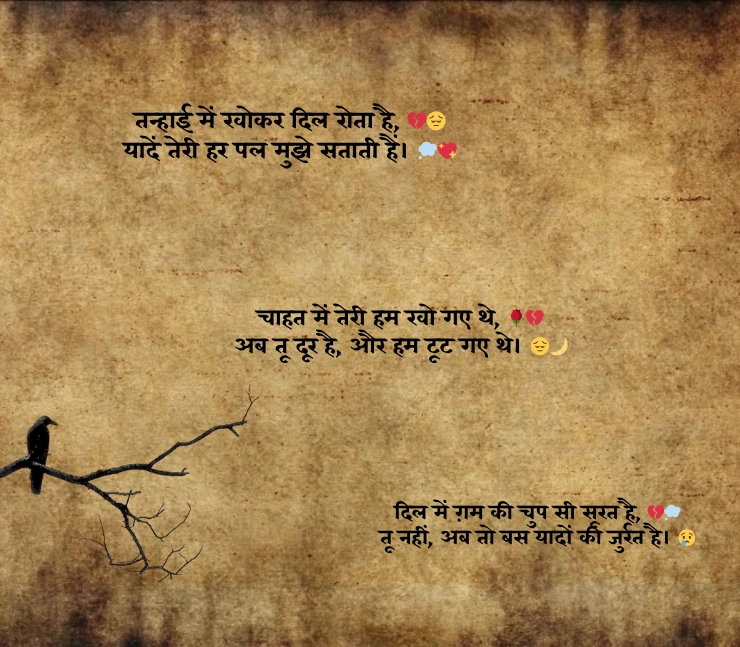 तन्हाई में खोकर दिल रोता है, 💔😔
यादें तेरी हर पल मुझे सताती हैं। 💭💖
चाहत में तेरी हम खो गए थे, 🌹💔
अब तू दूर है, और हम टूट गए थे। 😔🌙
दिल में ग़म की चुप सी सूरत है, 💔💭
तू नहीं, अब तो बस यादों की जुर्रत है। 😢